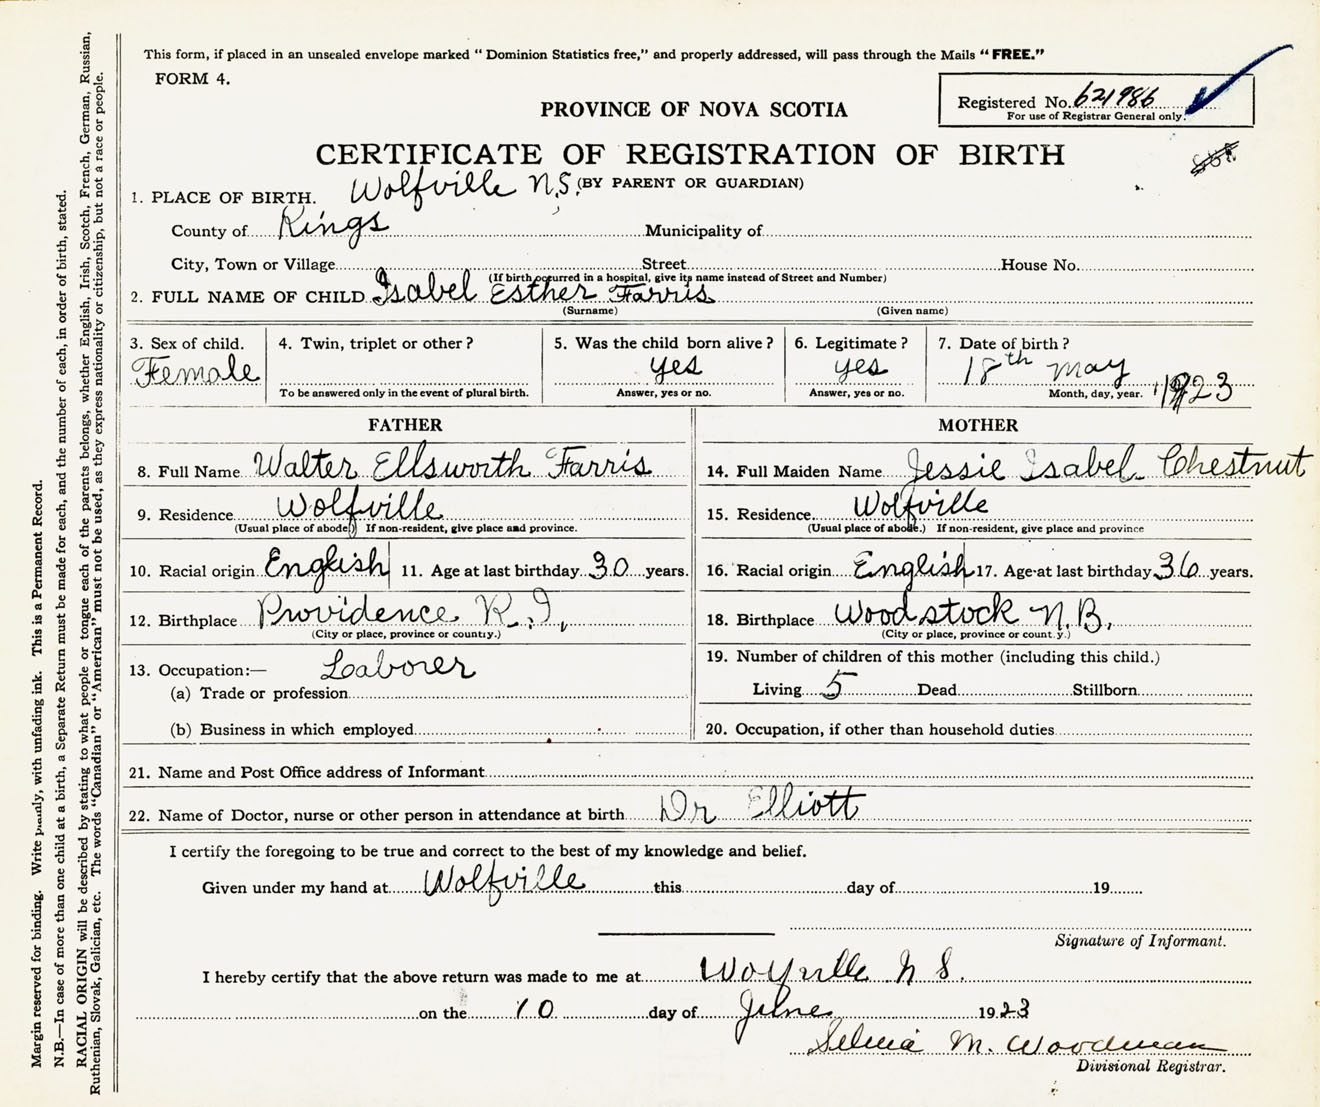 This form, if placed in an unsealed envelope marked "Dominion Statistics free," and properly addressed, will pass through the Mails "FREE."
FORM 4.
Registered No. 621986
For use of Registrar General only.
PROVINCE OF NOVA SCOTIA
CERTIFICATE OF REGISTRATION OF BIRTH
(BY PARENT OR GUARDIAN)
1. PLACE OF BIRTH. Wolfville N.S.
County of Kings Municipality of
City, Town or Village Street House No.
(If birth occurred in a hospital, give its name instead of Street and Number)
2. FULL NAME OF CHILD Isabel Esther Farris
(Surname) (Given name)
3. Sex of child. Female
4. Twin, triplet or other?
To be answered only in the event of plural birth.
5. Was the child born alive? yes
Answer, yes or no.
6. Legitimate? yes
Answer, yes or no.
7. Date of birth? 18th May 1923
Month, day, year.
FATHER
8. Full Name Walter Ellsworth Farris
9. Residence Wolfville
(Usual place of abode) If non-resident, give place and province.
10. Racial origin English 11. Age at last birthday 30 years.
12. Birthplace Providence R.I.
(City or place, province or country.)
13. Occupation:— Laborer
(a) Trade or profession
(b) Business in which employed
MOTHER
14. Full Maiden Name Jessie Isabel Chestnut
15. Residence Wolfville
(Usual place of abode.) If non-resident, give place and province
16. Racial origin English 17. Age at last birthday 36 years.
18. Birthplace Woodstock N.B.
(City or place, province or count.y.)
19. Number of children of this mother (including this child.)
Living 5 Dead Stillborn
20. Occupation, if other than household duties
21. Name and Post Office address of Informant
22. Name of Doctor, nurse or other person in attendance at birth Dr Elliott
I certify the foregoing to be true and correct to the best of my knowledge and belief.
Given under my hand at Wolfville this day of 19
Signature of Informant.
I hereby certify that the above return was made to me at Wolfville N S.
on the 10 day of June 1923
Selma M. Woodman
Divisional Registrar.
Margin reserved for binding. Write plainly, with unfading ink. This is a Permanent Record.
N.B.—In case of more than one child at a birth, a Separate Return must be made for each, and the number of each, in order of birth, stated.
RACIAL ORIGIN will be described by stating to what people or tongue each of the parents belongs, whether English, Irish, Scotch, French, German, Russian,
Ruthenian, Slovak, Galician, etc. The words "Canadian" or "American" must not be used, as they express nationality or citizenship, but not a race or people.